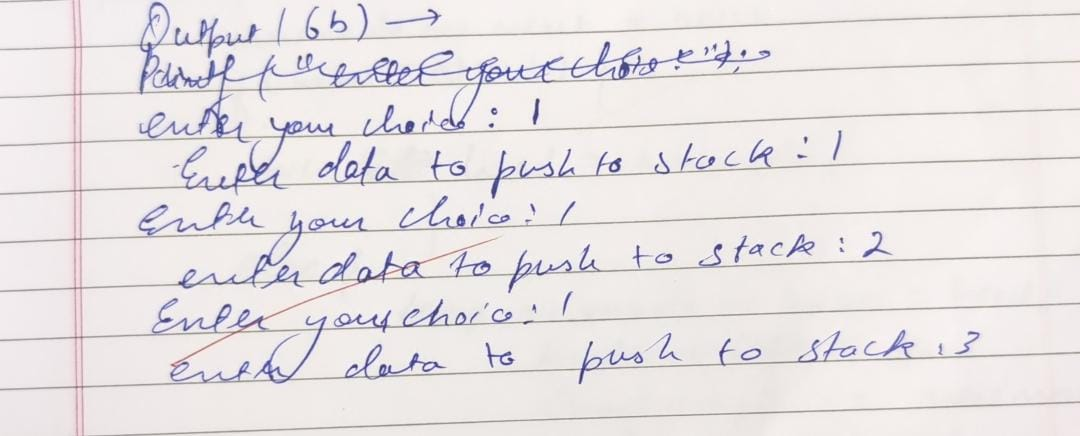 Output (6b) →
Printf ("enter your choice: ");
enter your choice: 1
Enter data to push to stack: 1
Enter your choice: 1
enter data to push to stack: 2
Enter your choice: 1
enter data to push to stack: 3